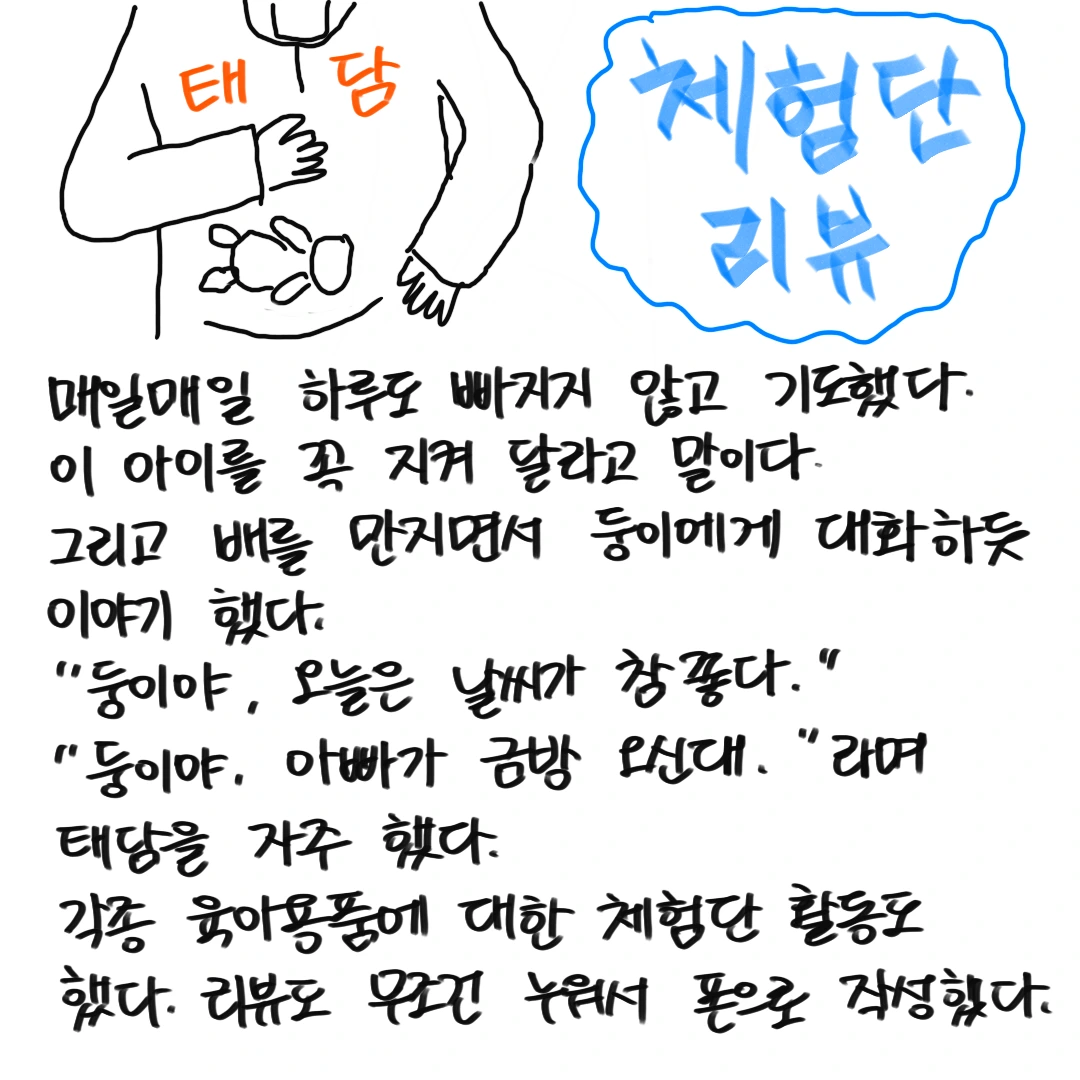 태담
체험단
리뷰
매일매일 하루도 빠지지 않고 기도했다.
이 아이를 꼭 지켜 달라고 말이다.
그리고 배를 만지면서 둥이에게 대화하듯
이야기 했다.
"둥이야, 오늘은 날씨가 참 좋다."
"둥이야. 아빠가 금방 오신대."라며
태담을 자주 했다.
각종 육아용품에 대한 체험단 활동도
했다. 리뷰도 무조건 누워서 폰으로 작성했다.